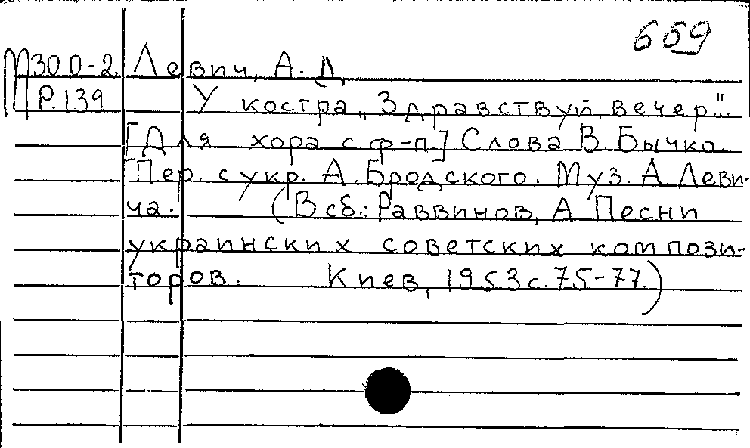 659
М30 0-2. Левич, А. Л.
Р.139 У костра „Здравствуй, вечер".
[Для хора с ф-п.] Слова В. Бычко.
Пер. с укр. А. Бродского. Муз. А. Леви-
ча. (В сб.: Раввинов, А. Песни
украинских советских компози-
торов. Киев, 1953 с. 75-77.)